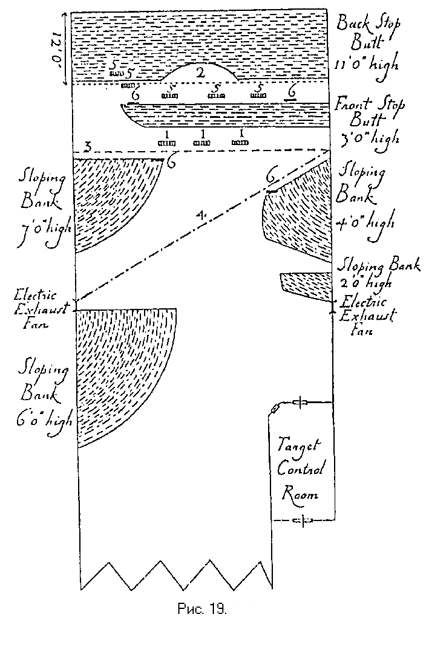 12'0"
Back Stop
Butt
11'0" high
5
5
2
6
5
5
5
6
Front Stop
Butt
3'0" high
1 1 1
3
6
6
Sloping
Bank
7'0" high
Sloping
Bank
4'0" high
4.
Sloping Bank
2'0" high
Electric
Exhaust
Fan
Electric
Exhaust
Fan
Sloping
Bank
6'0" high
Target
Control
Room
Рис. 19.